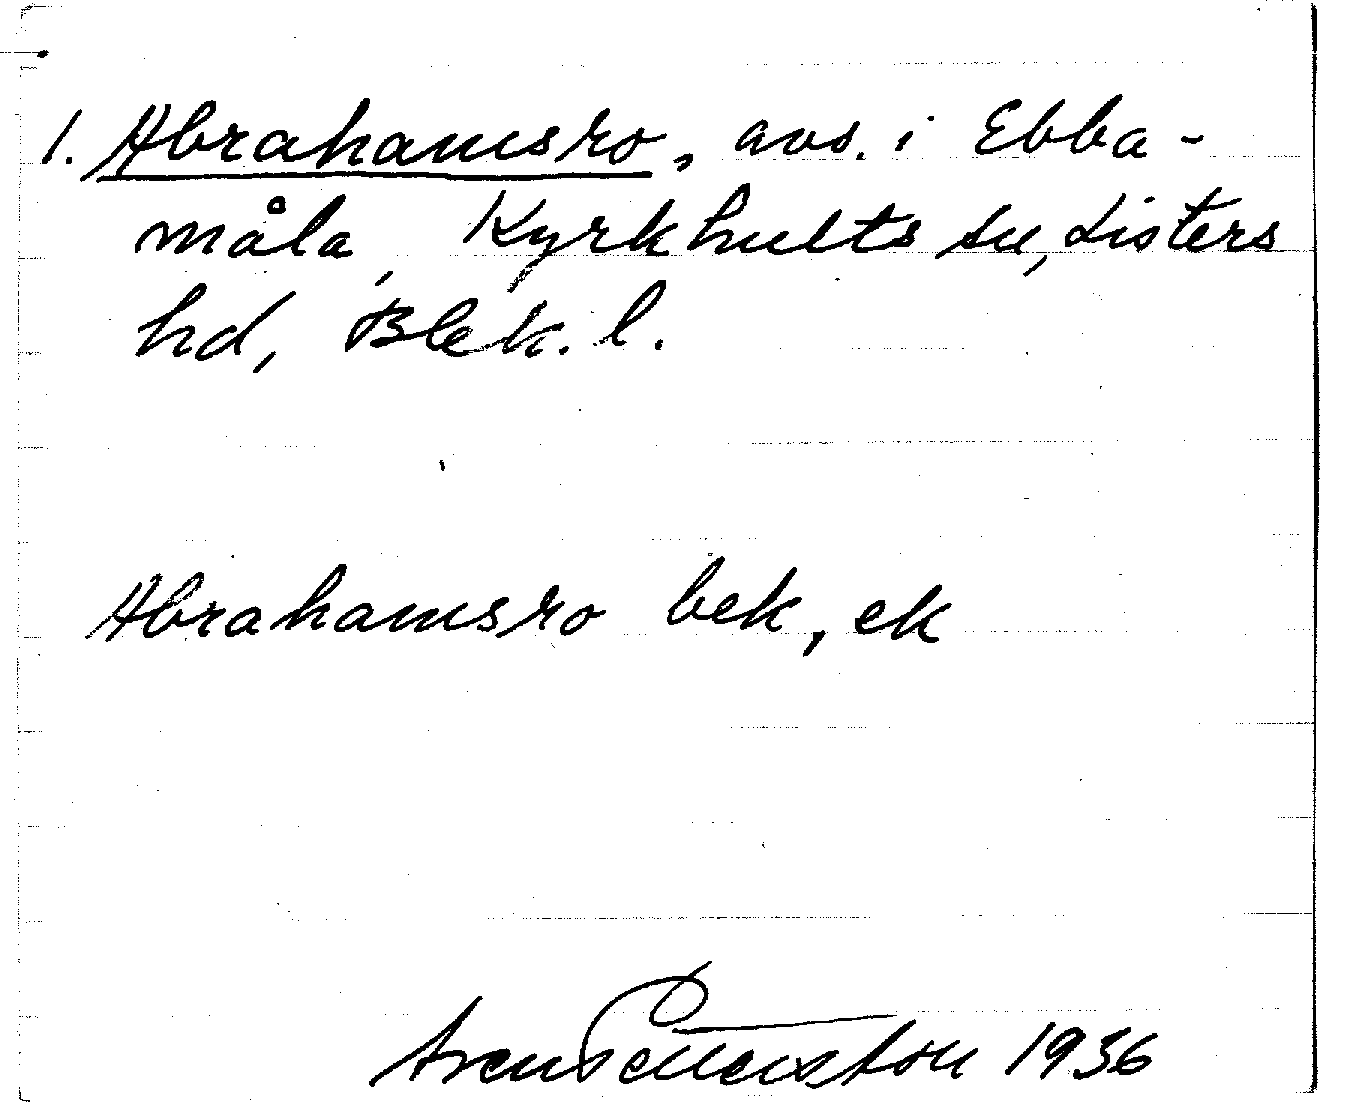 1. Abrahamsro, avs. i Ebba-
måla, Kyrkhults sn, Listers
hd, Blek. l.
Abrahamsro bek, ek
Sven Pettersson 1936